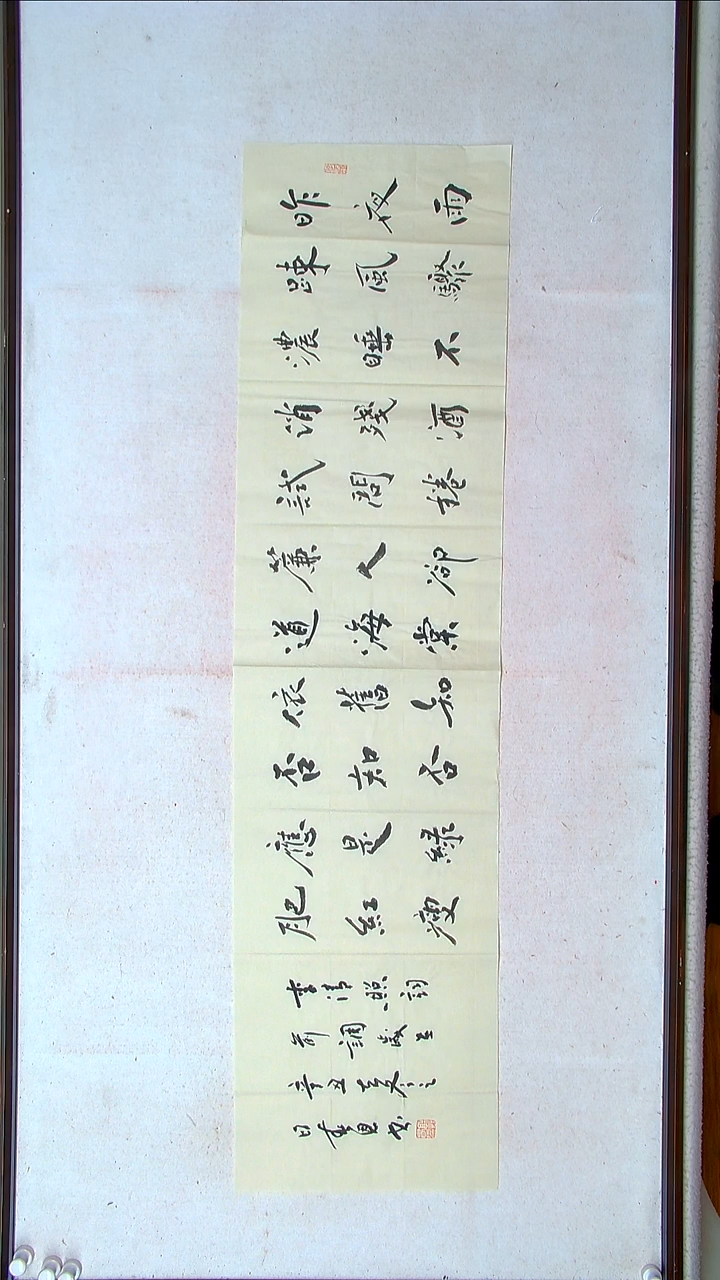 昨夜雨
踈風驟
濃睡不
消殘酒
試問捲
簾人卻
道海棠
依舊知
否知否
應是綠
肥紅瘦
李清照詞
調歲在
辛丑冬之
日